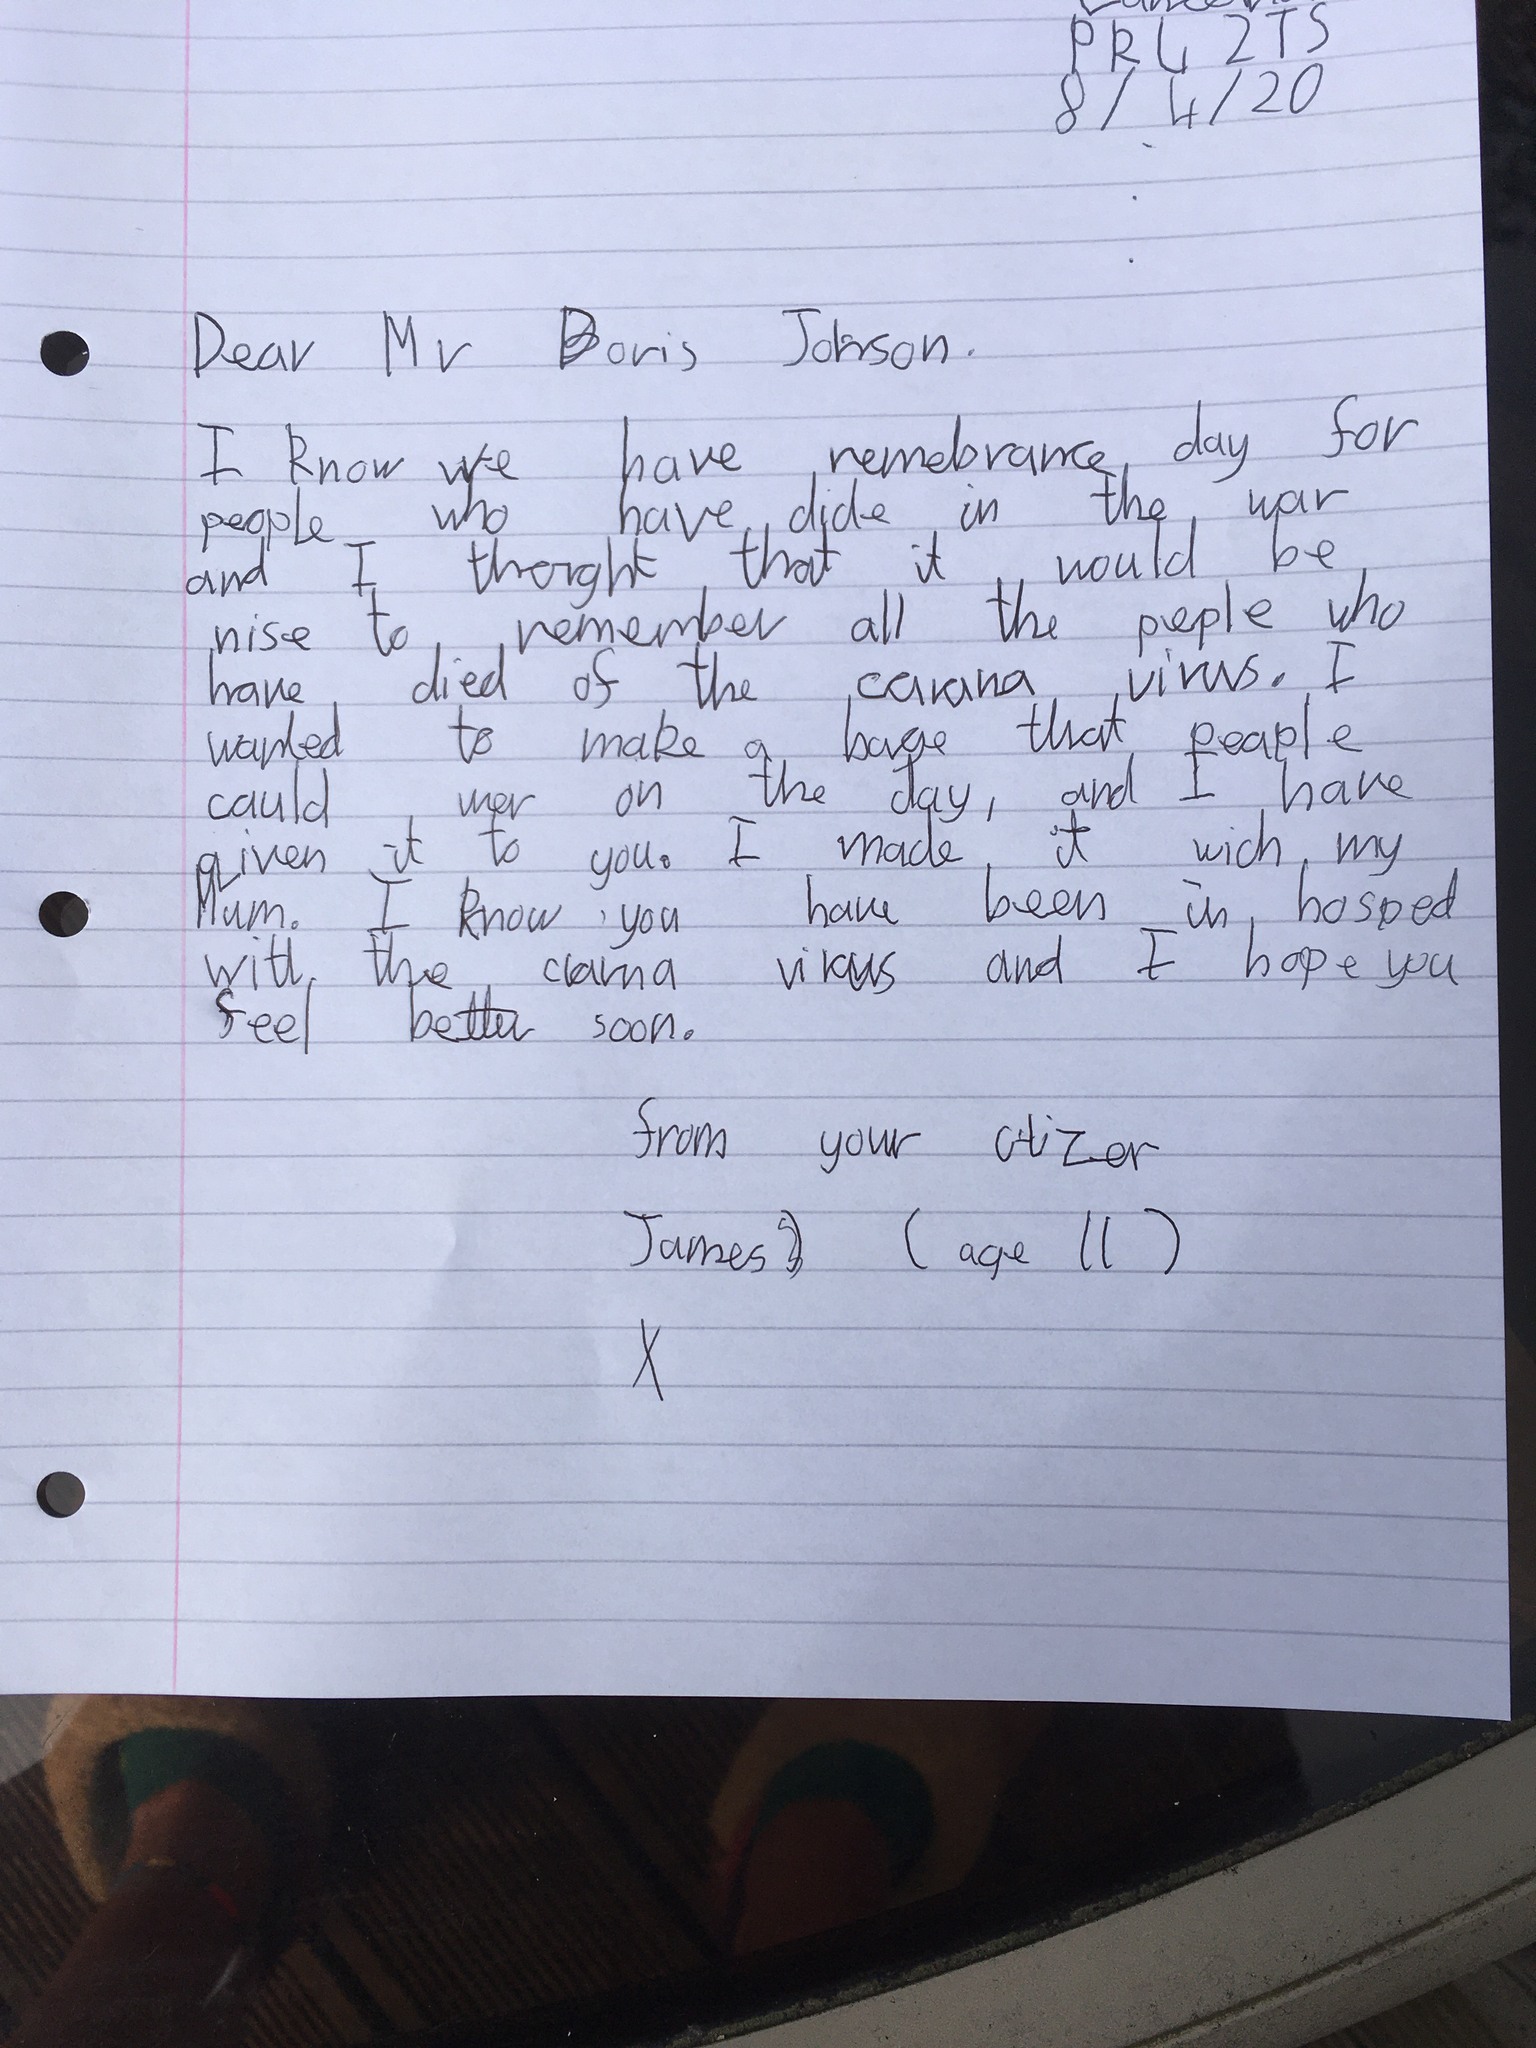 PR4 2TS
8/4/20
Dear Mr Boris Johnson.
I know we have remebrance day for
people who have dide in the war
and I thorght that it would be
nise to remember all the pieple who
have died of the carana virus. I
wanted to make a bage that peaple
cauld wer on the day, and I have
given it to you. I made it wich my
Mum. I know you have been in hosped
with the clarna virus and I hope you
feel better soon.
from your citizer
James (age 11)
X